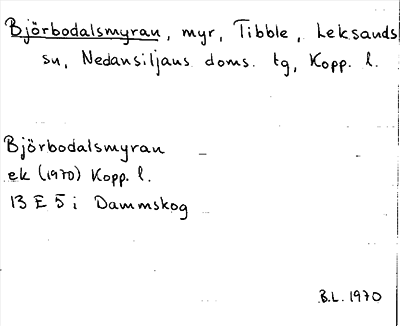 Björbodalsmyran, myr, Tibble, Leksands
sn, Nedansiljans doms. tg, Kopp. l.
Björbodalsmyran
ek (1970) Kopp. l.
13 E 5 i Dammskog
B.L. 1970